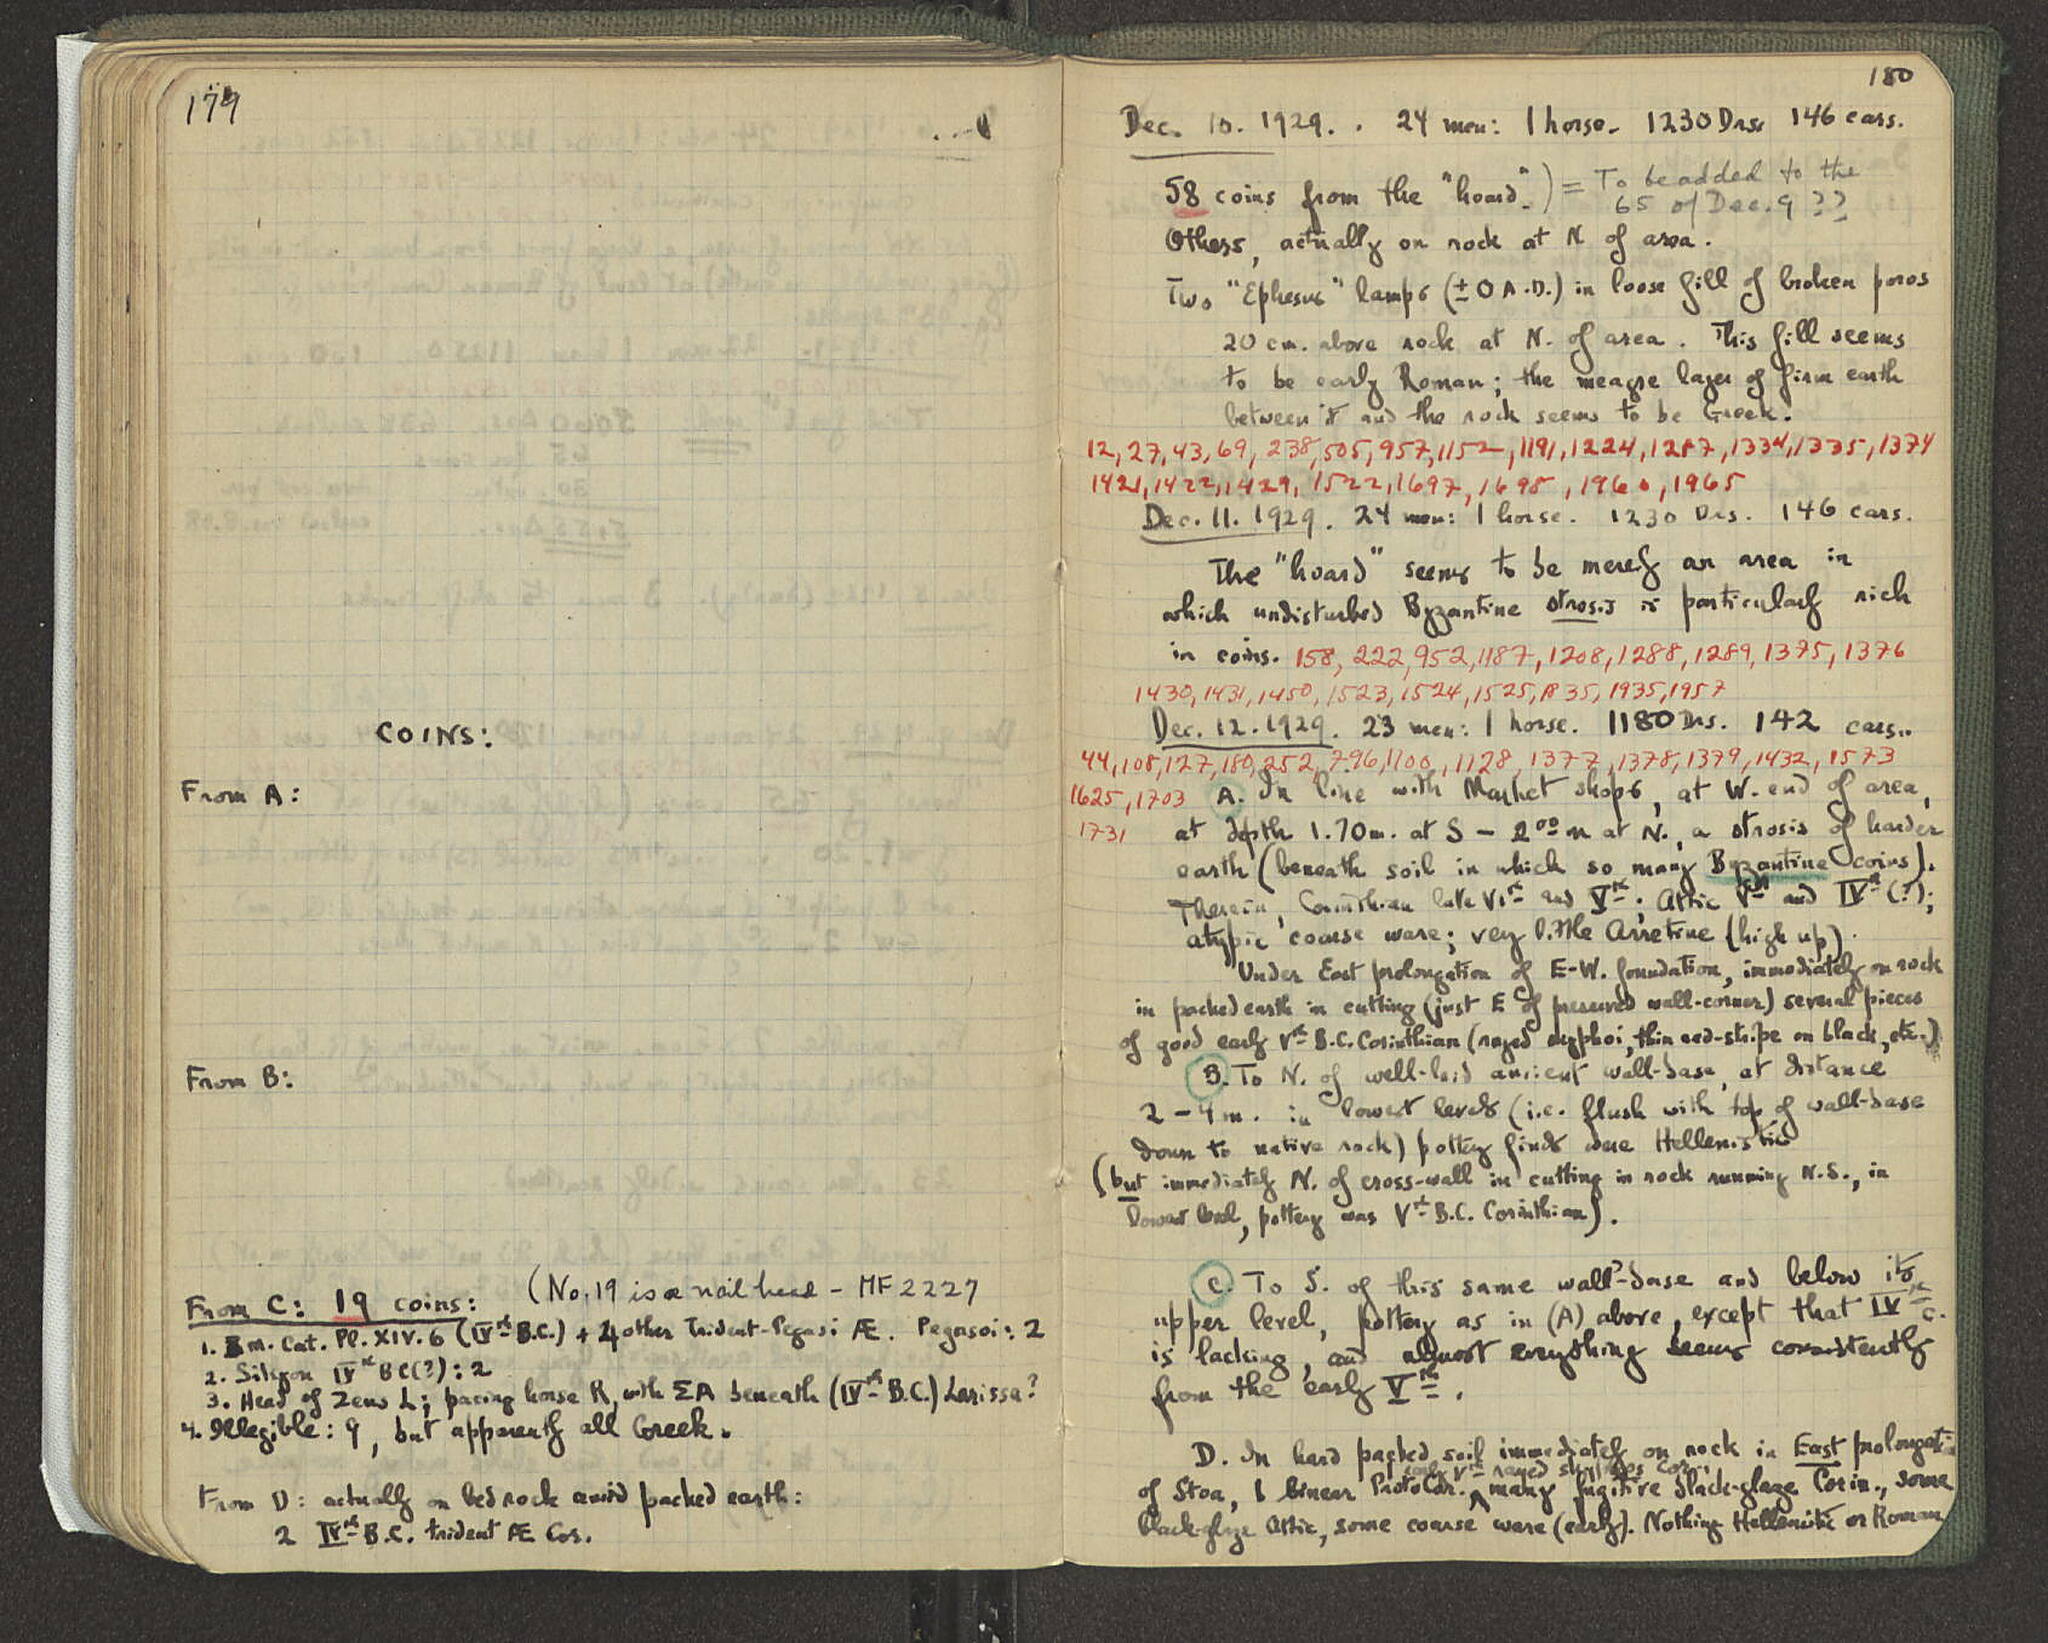 179
COINS:
From A:
From B:
From C: 19 coins: (No. 19 is a nail head - MF 2227
1. Bm. Cat. Pl. XIV. 6 (IVth B.C.) + 4 other Trident-Pegasi Æ. Pegasoi: 2
2. Sikyon IVth BC(?): 2
3. Head of Zeus L; pacing horse R, with ΣA beneath (IVth B.C.) Larissa?
4. Illegible: 9, but apparently all Greek.
From D: actually on bedrock amid packed earth:
2 IVth B.C. trident Æ Cor.
180
Dec. 10. 1929. . 24 men: 1 horse. 1230 Drs. 146 cars.
58 coins from the "hoard".) = To be added to the
65 of Dec. 9 ??
Others, actually on rock at N of area.
Two "Ephesus" lamps (± 0 A.D.) in loose fill of broken poros
20 cm. above rock at N. of area. This fill seems
to be early Roman; the meagre layer of firm earth
between it and the rock seems to be Greek.
12, 27, 43, 69, 238, 505, 957, 1152, 1191, 1224, 1287, 1334, 1335, 1374
1421, 1422, 1429, 1522, 1697, 1698, 1960, 1965
Dec. 11. 1929. 24 men: 1 horse. 1230 Drs. 146 cars.
The "hoard" seems to be merely an area in
which undisturbed Byzantine strosis is particularly rich
in coins. 158, 222, 952, 1187, 1208, 1288, 1289, 1375, 1376
1430, 1431, 1450, 1523, 1524, 1525, 1835, 1935, 1957
Dec. 12. 1929. 23 men: 1 horse. 1180 Drs. 142 cars.
44, 108, 127, 180, 252, 796, 1100, 1128, 1377, 1378, 1379, 1432, 1573
1625, 1703 A. In line with Market shops, at W. end of area,
1731 at depth 1.70m. at S - 2.00 m at N., a strosis of harder
earth (beneath soil in which so many Byzantine coins).
Therein, Corinthian late VIth and Vth; Attic Vth and IVth (?);
atypic coarse ware; very little Arretine (high up).
Under East prolongation of E-W. foundation, immediately on rock
in packed earth in cutting (just E of preserved wall-corner) several pieces
of good early Vth B.C. Corinthian (rayed skyphoi, thin red-stripe on black, etc.)
B. To N. of well-laid ancient wall-base, at distance
2 - 4 m. in lowest levels (i.e. flush with top of wall-base
down to native rock) pottery finds were Hellenistic
(but immediately N. of cross-wall in cutting in rock running N.S., in
lowest level, pottery was Vth B.C. Corinthian).
C. To S. of this same wall-base and below its
upper level, pottery as in (A) above, except that IVth c.
is lacking, and almost everything seems consistently
from the early Vth.
D. In hard packed soil immediately on rock in East prolongation
early Vth rayed skyphos Cor.,
of Stoa, 1 linear ProtoCor. ∧ many fugitive black-glaze Corin., some
black-glaze Attic, some coarse ware (early). Nothing Hellenistic or Roman